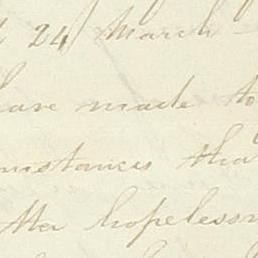 24 March
have made to
mstances tha
the hopelessn